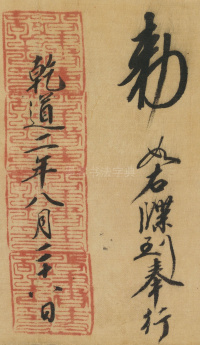 敕
如右牒到奉行
乾道二年八月二十八日